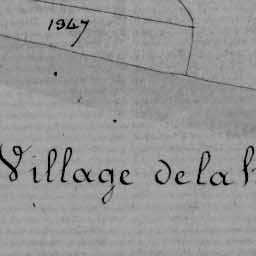 1947
Village de la